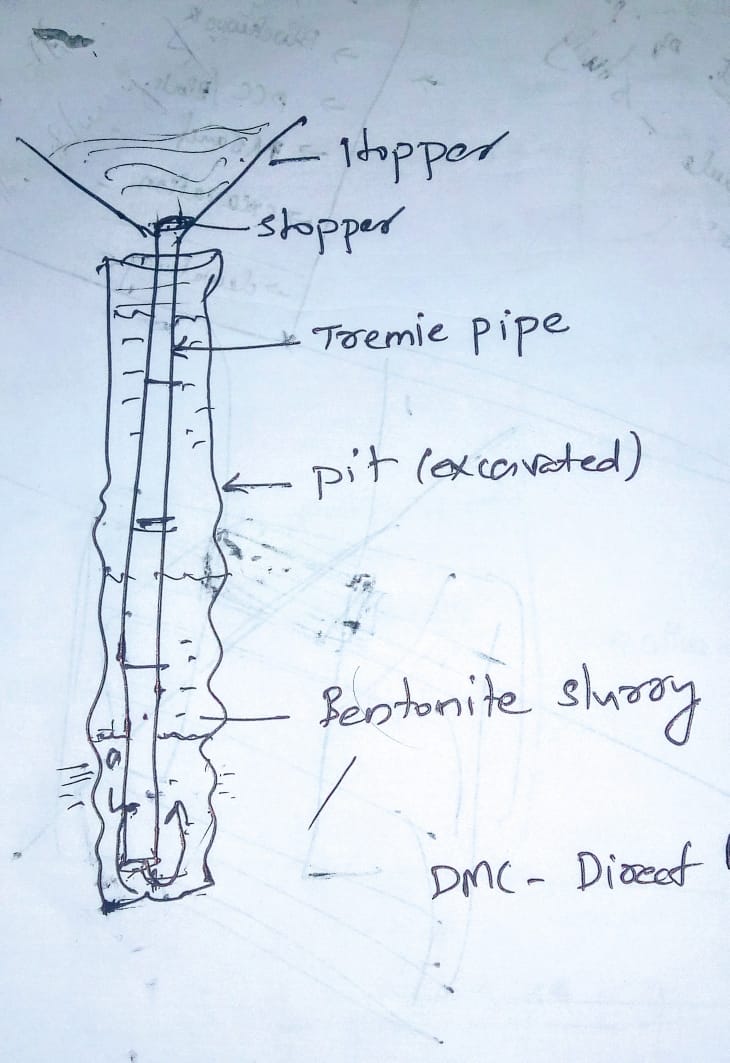 Hopper
stopper
Tremie pipe
pit (excavated)
Bentonite slurry
DMC - Direct